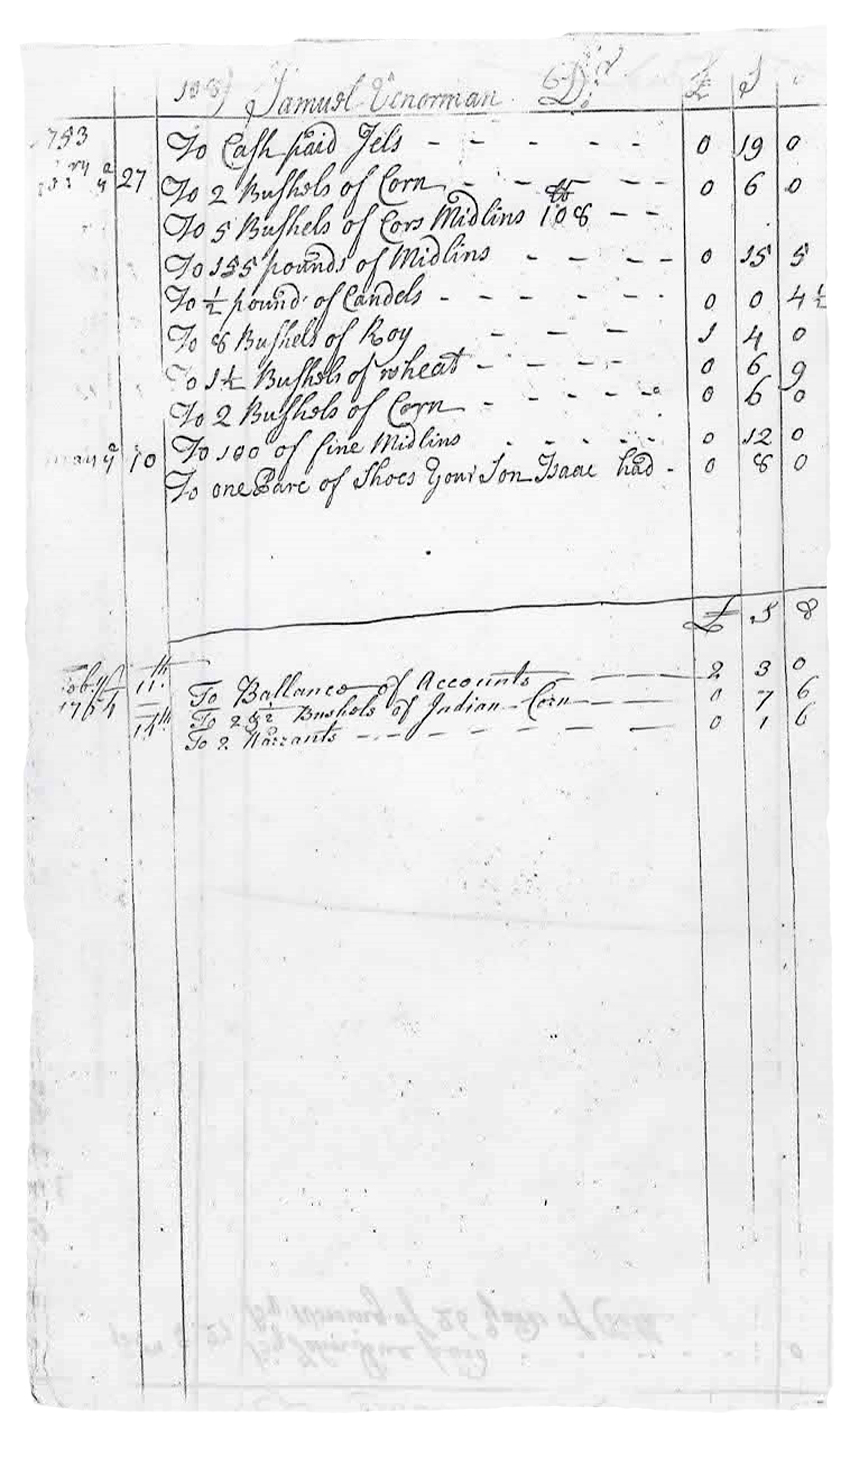 108) Samuel Venorman Dr £ S D
1753 To Cash paid Jels - - - - - 0 19 0
ye 27 To 2 Bushels of Corn - - - - - 0 6 0
To 5 Bushels of Cors Midlins 108 lb - -
To 155 pounds of Midlins - - - - - 0 15 5
To ½ pound of Candels - - - - - - 0 0 4½
To 8 Bushels of Roy - - - 1 4 0
To 1½ Bushels of wheat - - - - - 0 6 9
To 2 Bushels of Corn - - - - - - 0 6 0
To 100 of fine Midlins - - - - - 0 12 0
may ye 10 To one Pare of Shoes Your Son Isaac had - 0 8 0
£ S d
Feb ye 11th To Ballance of Accounts 2 3 0
1764 To 2 & ½ Bushels of Indian Corn 0 7 6
14th To 2 Warrants 0 1 6